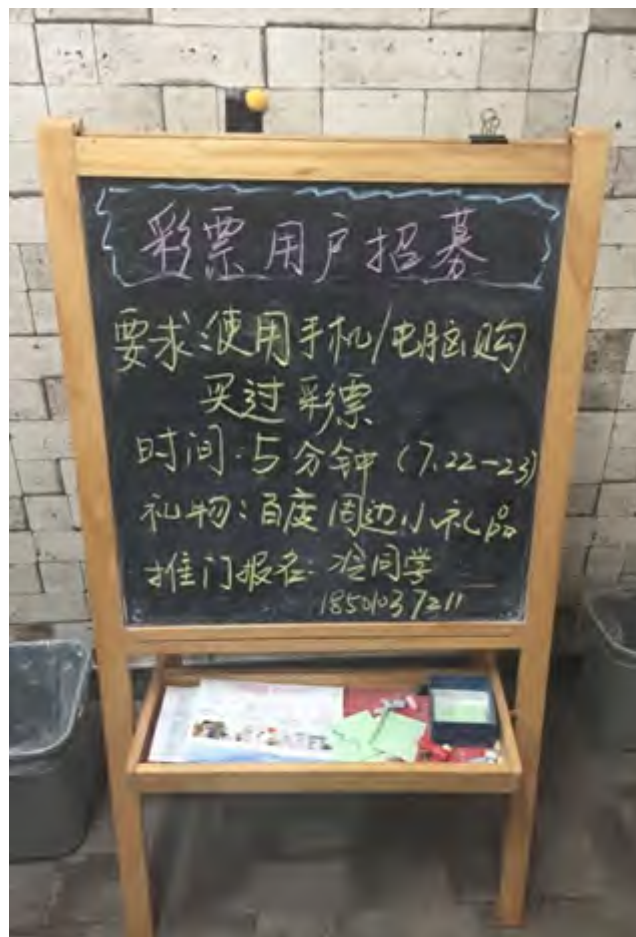 彩票用户招募
要求:使用手机/电脑购
买过彩票
时间:5分钟 (7.22-23)
礼物:百度周边小礼品
推门报名: 冷同学
18501037211